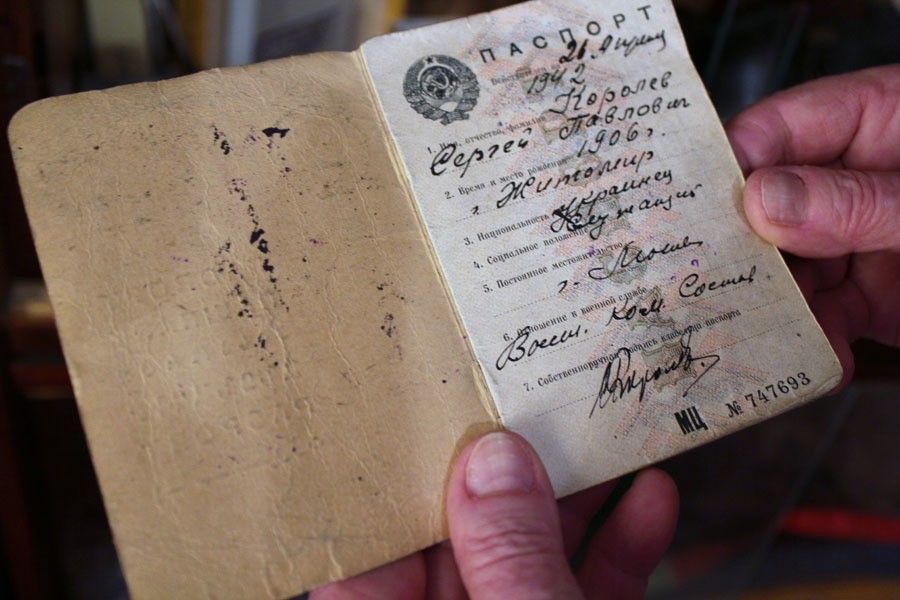 ПАСПОРТ
26 Апреля
1942
Королев
1. Имя, отчество, фамилия
Сергей Павлович
1906 г.
2. Время и место рождения
г. Житомир
3. Национальность Украинец
4. Социальное положение Служащий
5. Постоянное местожительство
г. Москва
6. Отношение к военной службе
Воен. Ком. Состав
7. Собственноручная подпись владельца паспорта
МЦ № 747693